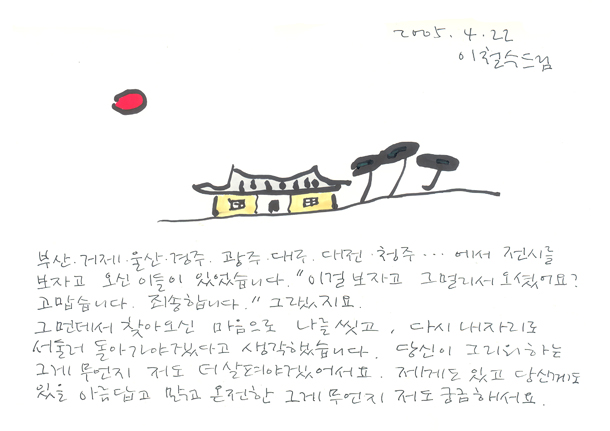 2005. 4. 22
이철수드림
부산·거제·울산·경주. 광주·대주. 대전·청주 … 에서 전시를
보자고 오신 이들이 있었습니다. "이걸 보자고 그멀리서 오셨어요?
고맙습니다. 죄송합니다." 그랬지요.
그먼데서 찾아오신 마음으로 나를 씻고, 다시 내자리로
서둘러 돌아가야겠다고 생각했습니다. 당신이 그리워하는
그게 무언지 저도 더 살펴야겠어서요. 제게도 있고 당신께도
있을 아름답고 맑고 온전한 그게 무언지 저도 궁금해서요.